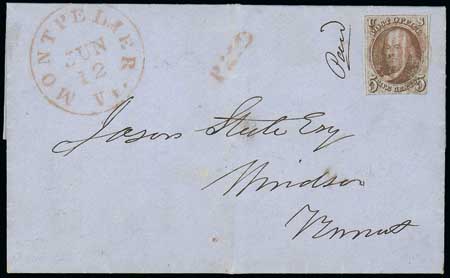 MONTPELIER Vt.
JUN
12
PAID
Paid
POST OFFICE
5 FIVE CENTS 5
Jason Steele Esq
Windsor
Vermont